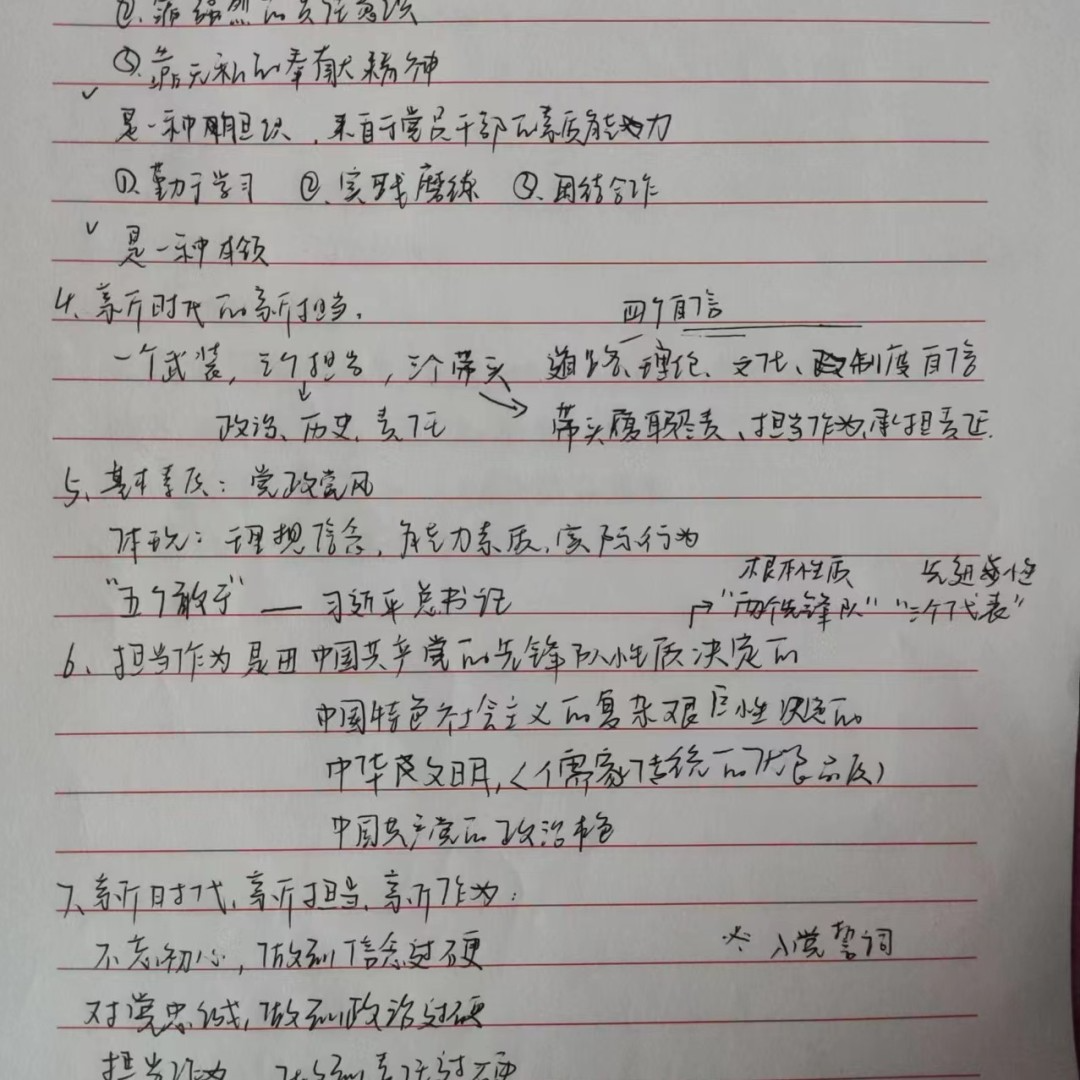 ②. 靠强烈的责任意识
③. 靠无私的奉献精神
✓
是一种胆识，来自于党员干部的素质能力
①. 勤于学习 ②. 实践磨练 ③. 团结合作
✓ 是一种本领
4、新时代的新担当.
四个自信
一个武装，三个担当，三个带头 道路、理论、文化、制度自信
政治、历史、责任 带头履职尽责、担当作为、承担责任.
5、基本素质：党政党风
体现：理想信念，能力素质，实际行为
根本性质 先进性
"五个敢于" — 习近平总书记 "两个先锋队" "三个代表"
6、担当作为是由中国共产党的先锋队性质决定的
中国特色社会主义的复杂艰巨性决定的
中华民文明，(儒家传统的优良品质)
中国共产党的政治本色
7、新时代、新担当、新作为：
不忘初心，做到信念过硬 ※ 入党誓词
对党忠诚，做到政治过硬
担当作为，做到责任过硬